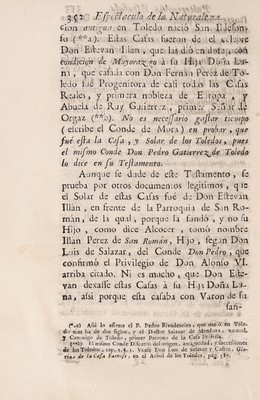 352 Espectaculo de la Naturaleza.
cion antigua en Toledo nació San Ildefon-
so (**2). Estas Casas fueron de el
Don Estevan Illan, que las dió en dote, con
condicion de Mayorazgo à su Hija Doña Lu-
na, que casada con Don Fernan Perez de To-
ledo fué Progenitora de casi todas las Casas
Reales, y primera nobleza de Europa, y
Abuela de Ruy Gutierrez, primer Señor de
Orgaz No es necessario gastar tiempo
(escribe el Conde de Mora) en probar, que
fué esta la Casa, y Solar de los Toledos, pues
el mismo Conde Don Pedro Gutierrez de Toledo
lo dice en su Testamento.
Aunque se dude de este Testamento, se
prueba por otros documentos legitimos, que
el Solar de estas Casas fué de Don Estevan
Illàn, en frente de la Parroquia de San Ro-
màn, de la qual, porque la fundó, y no su
Hijo, como dice Alcocer, tomó nombre
Illan Perez de San Román, Hijo, segun Don
Luis de Salazar, del Conde Don Pedro, que
confirmó el Privilegio de Don Alonso VI.
arriba citado. Ni es mucho, que Don Este-
van dexasse estas Casas à su Hija Doña Lu-
na, assi porque esta casaba con Varon de su
san-
Assi lo afirma el P. Pedro Rivadeneira, que en Tole-
do mas ha de dos siglos, y el Doctor Salazar de Mendoza, natural,
y Canonigo de Toledo, primer Patrono de la Casa Professa.
El mismo Conde Discurso del origen, antiguedad, y successiones
de los Toledos, cap. Vease Don Luis de Salazar y Castro, Glo-
rias de la Casa Farnese, en el Arbol de los Toledos, pag. 587.